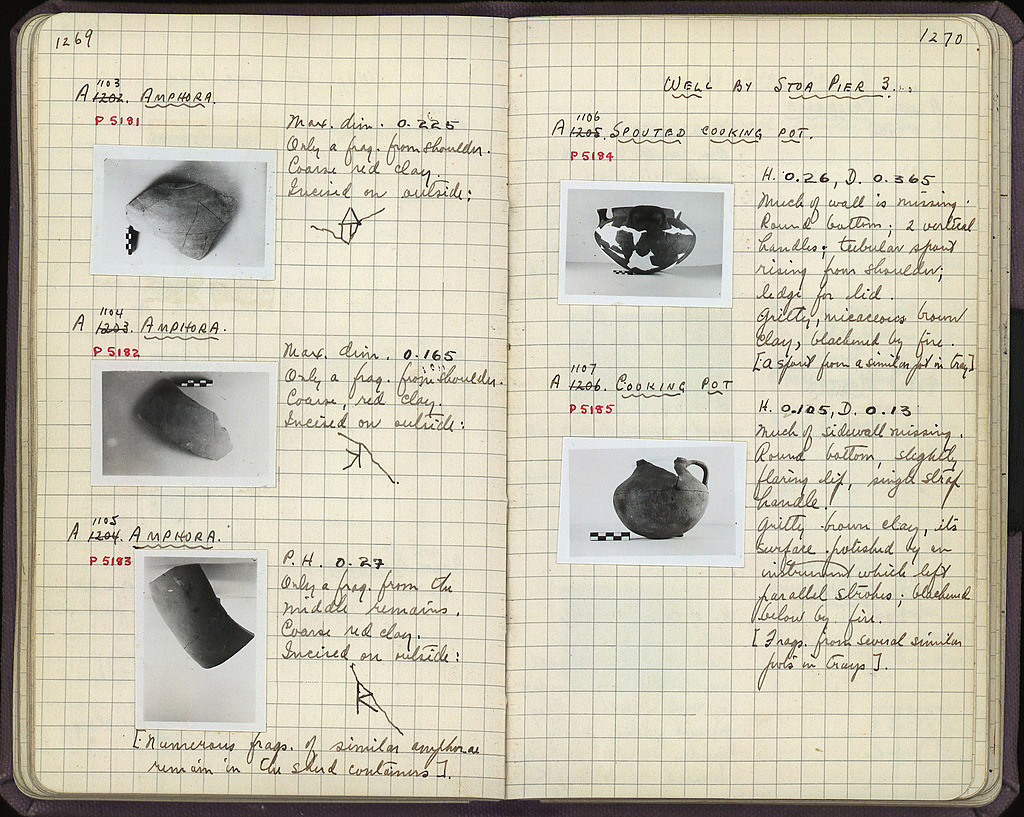 1269
1103
A 1202. AMPHORA.
P 5181
Max. dim. 0.225
Only a frag. from shoulder.
Coarse red clay.
Incised on outside:
1104
A 1203. AMPHORA.
P 5182
Max. dim. 0.165
Only a frag. from shoulder.
Coarse, red clay.
Incised on outside:
1105
A 1204. AMPHORA.
P 5183
P.H. 0.27
Only a frag. from the
middle remains.
Coarse red clay.
Incised on outside:
[Numerous frags. of similar amphorae
remain in the shed containers].
1270
WELL BY STOA PIER 3...
1106
A 1205. SPOUTED COOKING POT.
P 5184
H. 0.26, D. 0.365
Much of wall is missing.
Round bottom; 2 vertical
handles; tubular spout
rising from shoulder;
ledge for lid.
Gritty, micaceous brown
clay, blackened by fire.
[A spout from a similar pot in tray]
1107
A 1206. COOKING POT
P 5185
H. 0.105, D. 0.13
Much of sidewall missing.
Round bottom, slightly
flaring lip, single strap
handle.
Gritty brown clay, its
surface polished by an
instrument which left
parallel strokes; blackened
below by fire.
[Frags. from several similar
pots in trays].